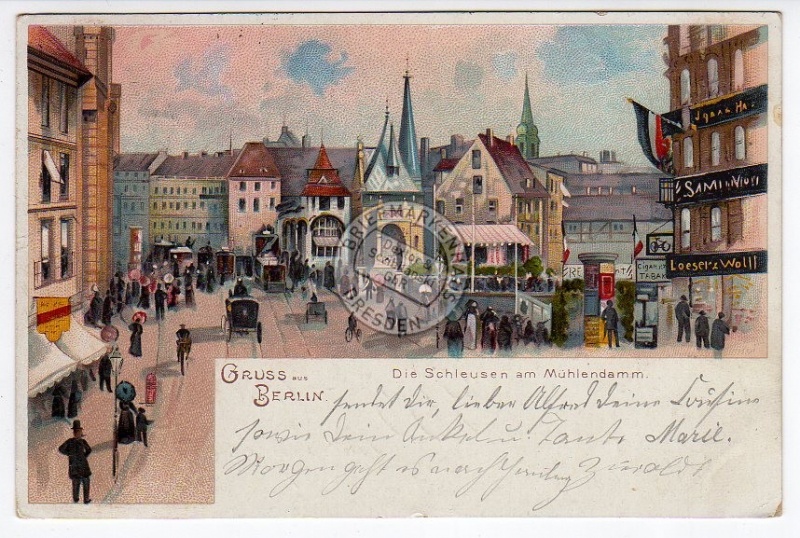 Jgnaz. Ha.
SAMI. Wiori
Loeser & Wolff
Cigarren
TABAK
BRIEFMARKENHAUS
DRESDEN
GRUSS aus
BERLIN.
Die Schleusen am Mühlendamm.
sendet Dir, lieber Alfred deine Cousine
sowie Dein Onkel u. Tante Marie.
Morgen geht es nach